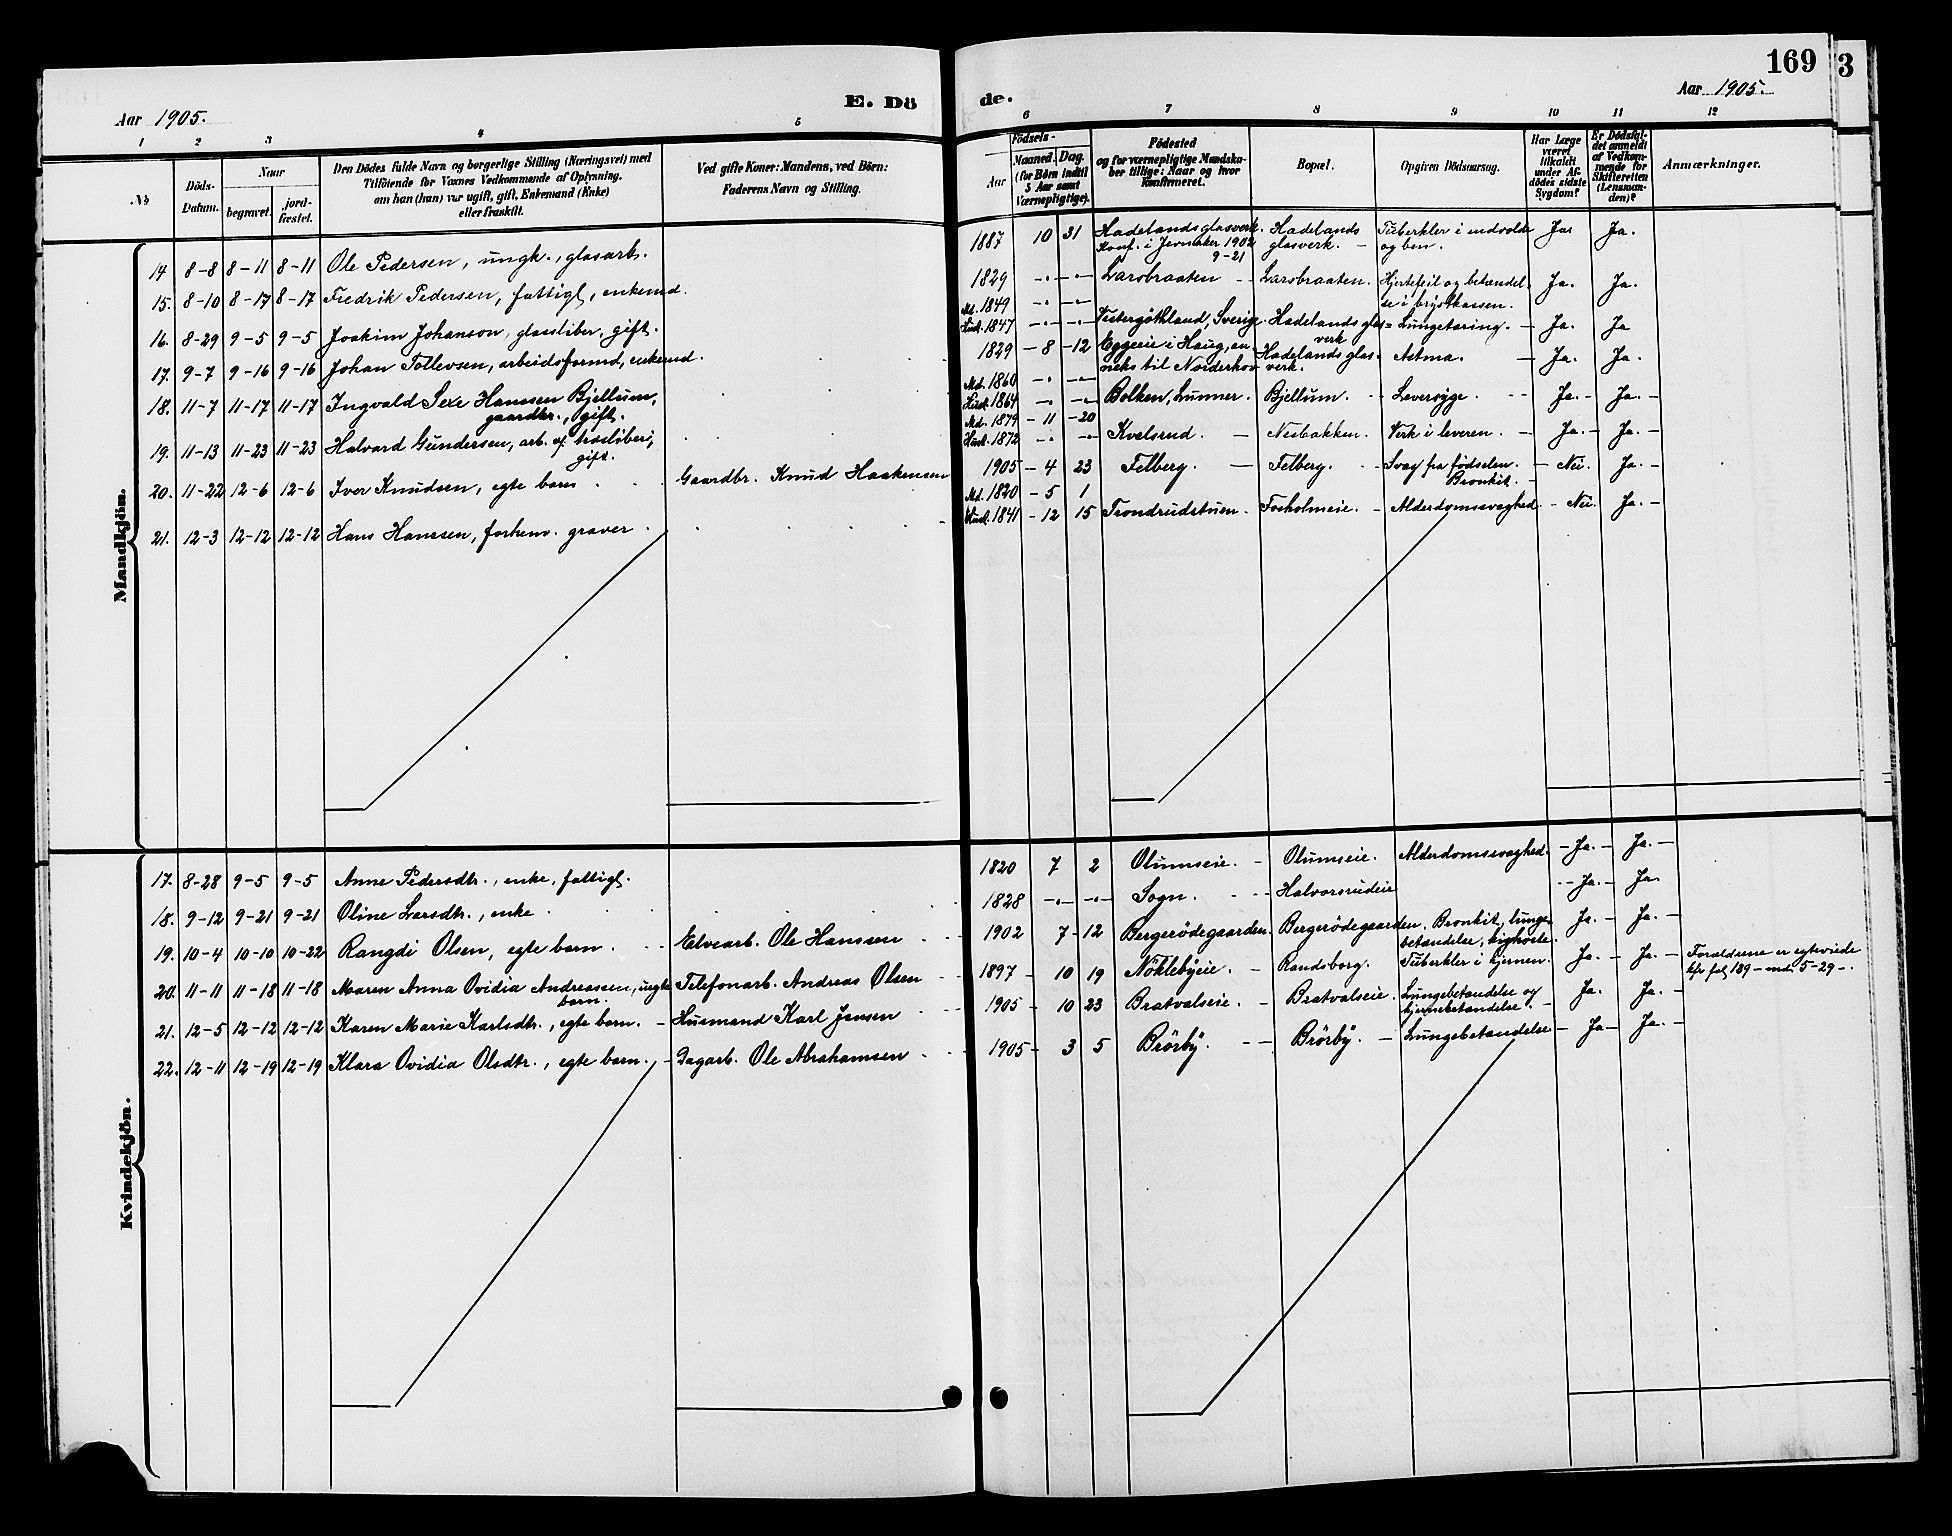 169
3
E. Dö de.
Aar 1905.
Aar 1905.
1 2 3 4 5 6 7 8 9 10 11 12
No
Döds-Datum.
Naar
begravet.
jord-fæstet.
Den Dödes fulde Navn og borgerlige Stilling (Næringsvei) med
Tilföiende for Voxnes Vedkommende af Oplysning,
om han (hun) var ugift, gift, Enkemand (Enke)
eller fraskilt.
Ved gifte Koner: Mandens, ved Börn:
Faderens Navn og Stilling.
Födsels-
Aar
Maaned. Dag.
(for Börn indtil
5 Aar samt
Værnepligtige).
Födested
og for værnepligtige Mandska-
ber tillige: Naar og hvor
konfirmeret.
Bopæl.
Opgiven Dödsaarsag.
Har Læge
været
tilkaldt
under Af-
dödes sidste
Sygdom?
Er Dödsfal-
det anmeldt
af Vedkom-
mende for
Skifteretten
(Lensman-
den)?
Anmærkninger.
Mandkjön.
14 8-8 8-11 8-11 Ole Pedersen, ungk., glasarb. 1887 10 31 Hadelandsglasverk. Konf. i Jevnaker 1902 9-21 Hadelands glasverk. Tuberkler i indvolde og ben. Ja. Ja.
15. 8-10 8-17 8-17 Fredrik Pedersen, fattigl., enkemd. 1829 Larsbraaten Larsbraaten. Hjertefeil og betændelse i brystkassen. Ja. Ja.
16. 8-29 9-5 9-5 Joakim Johanson, glassliber, gift. Md. 1849 Hust. 1847 Vestergöthland, Sverige. Hadelands glasverk Lungetæring. Ja. Ja
17. 9-7 9-16 9-16 Johan Tollevsen, arbeidsformd, enkemd. 1829 - 8 - 12 Eggeeie i Haug, anneks til Norderhov Hadelands glasverk. Astma. Ja. Ja.
18. 11-7 11-17 11-17 Ingvald Sexe Hanssen Bjellum, gaardbr., gift. Md. 1860 Hust. 1864 Bolken, Lunner. Bjellum. Leversyge. Ja. Ja.
19. 11-13 11-23 11-23 Halvard Gundersen, arb. v. træsliberi, gift. Md. 1879 - 11 - 20 Hust. 1872 Kvelsrud. Nesbakken. Verk i leveren. Ja. Ja.
20. 11-22 12-6 12-6 Iver Knudsen, egte barn Gaardbr. Knud Haakensen 1905 - 4 23 Felberg. Felberg. Svag fra fødselen. Bronkit. Nei. Ja.
21. 12-3 12-12 12-12 Hans Hanssen, forhenv. graver Md. 1820 - 5 1 Hust. 1841 - 12 15 Trondrudstuen Fosholmeie. Alderdomssvaghed. Nei. Ja.
Kvindekjön.
17. 8-28 9-5 9-5 Anne Pedersdtr., enke, fattigl. 1820 7 2 Olumseie. Olumseie. Alderdomssvaghed. Ja. Ja.
18. 9-12 9-21 9-21 Oline Larsdtr., enke 1828 Sogn. Halvorsrudeie Ja. Ja.
19. 10-4 10-10 10-22 Rangdi Olsen, egte barn. Elvearb. Ole Hanssen 1902 7-12 Bergerödegaarden. Bergerödegaarden. Bronkit, lungebetændelse, kighoste. Ja. Ja.
20. 11-11 11-18 11-18 Maren Anna Ovidia Andreassen, uegte barn. Telefonarb. Andreas Olsen 1897 - 10 19 Nöklebyeie. Randsborg. Tuberkler i hjernen. Ja. Ja. Forældrene er egteviede kfr fol. 189 - mdl. 5-29-.
21. 12-5 12-12 12-12 Karen Marie Karlsdtr., egte barn. Husmand Karl Jensen 1905 - 10 23 Bratvalseie. Bratvalseie. Lungebetændelse og hjernebetændelse. Ja. Ja.
22. 12-11 12-19 12-19 Klara Ovidia Olsdtr., egte barn. Dagarb. Ole Abrahamsen 1905 - 3 5 Brörby. Brörby. Lungebetændelse Ja Ja.